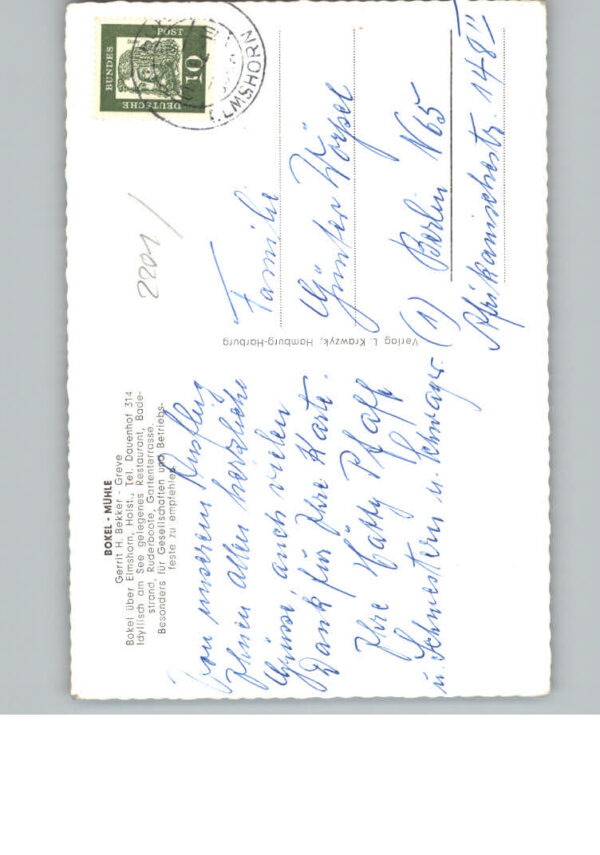 BOKEL - MÜHLE
Gerrit H. Bekker - Greve
Bokel über Elmshorn, Holst., Tel. Dauenhof 314
Idyllisch am See gelegenes Restaurant, Bade-
strand, Ruderboote, Gartenterrasse.
Besonders für Gesellschaften und Betriebs-
feste zu empfehlen.
Von unserem Ausflug
Ihnen allen herzliche
Grüße, auch vielen
Dank für Ihre Karte.
Ihre Käthy Pfaff
u. Schwestern u. Schwager.
Verlag L. Krawzyk, Hamburg-Harburg
DEUTSCHE
BUNDES
POST
10
ELMSHORN
2201/
Familie
Günter Wörpel
(1) Berlin N65
Afrikanischestr. 148 II